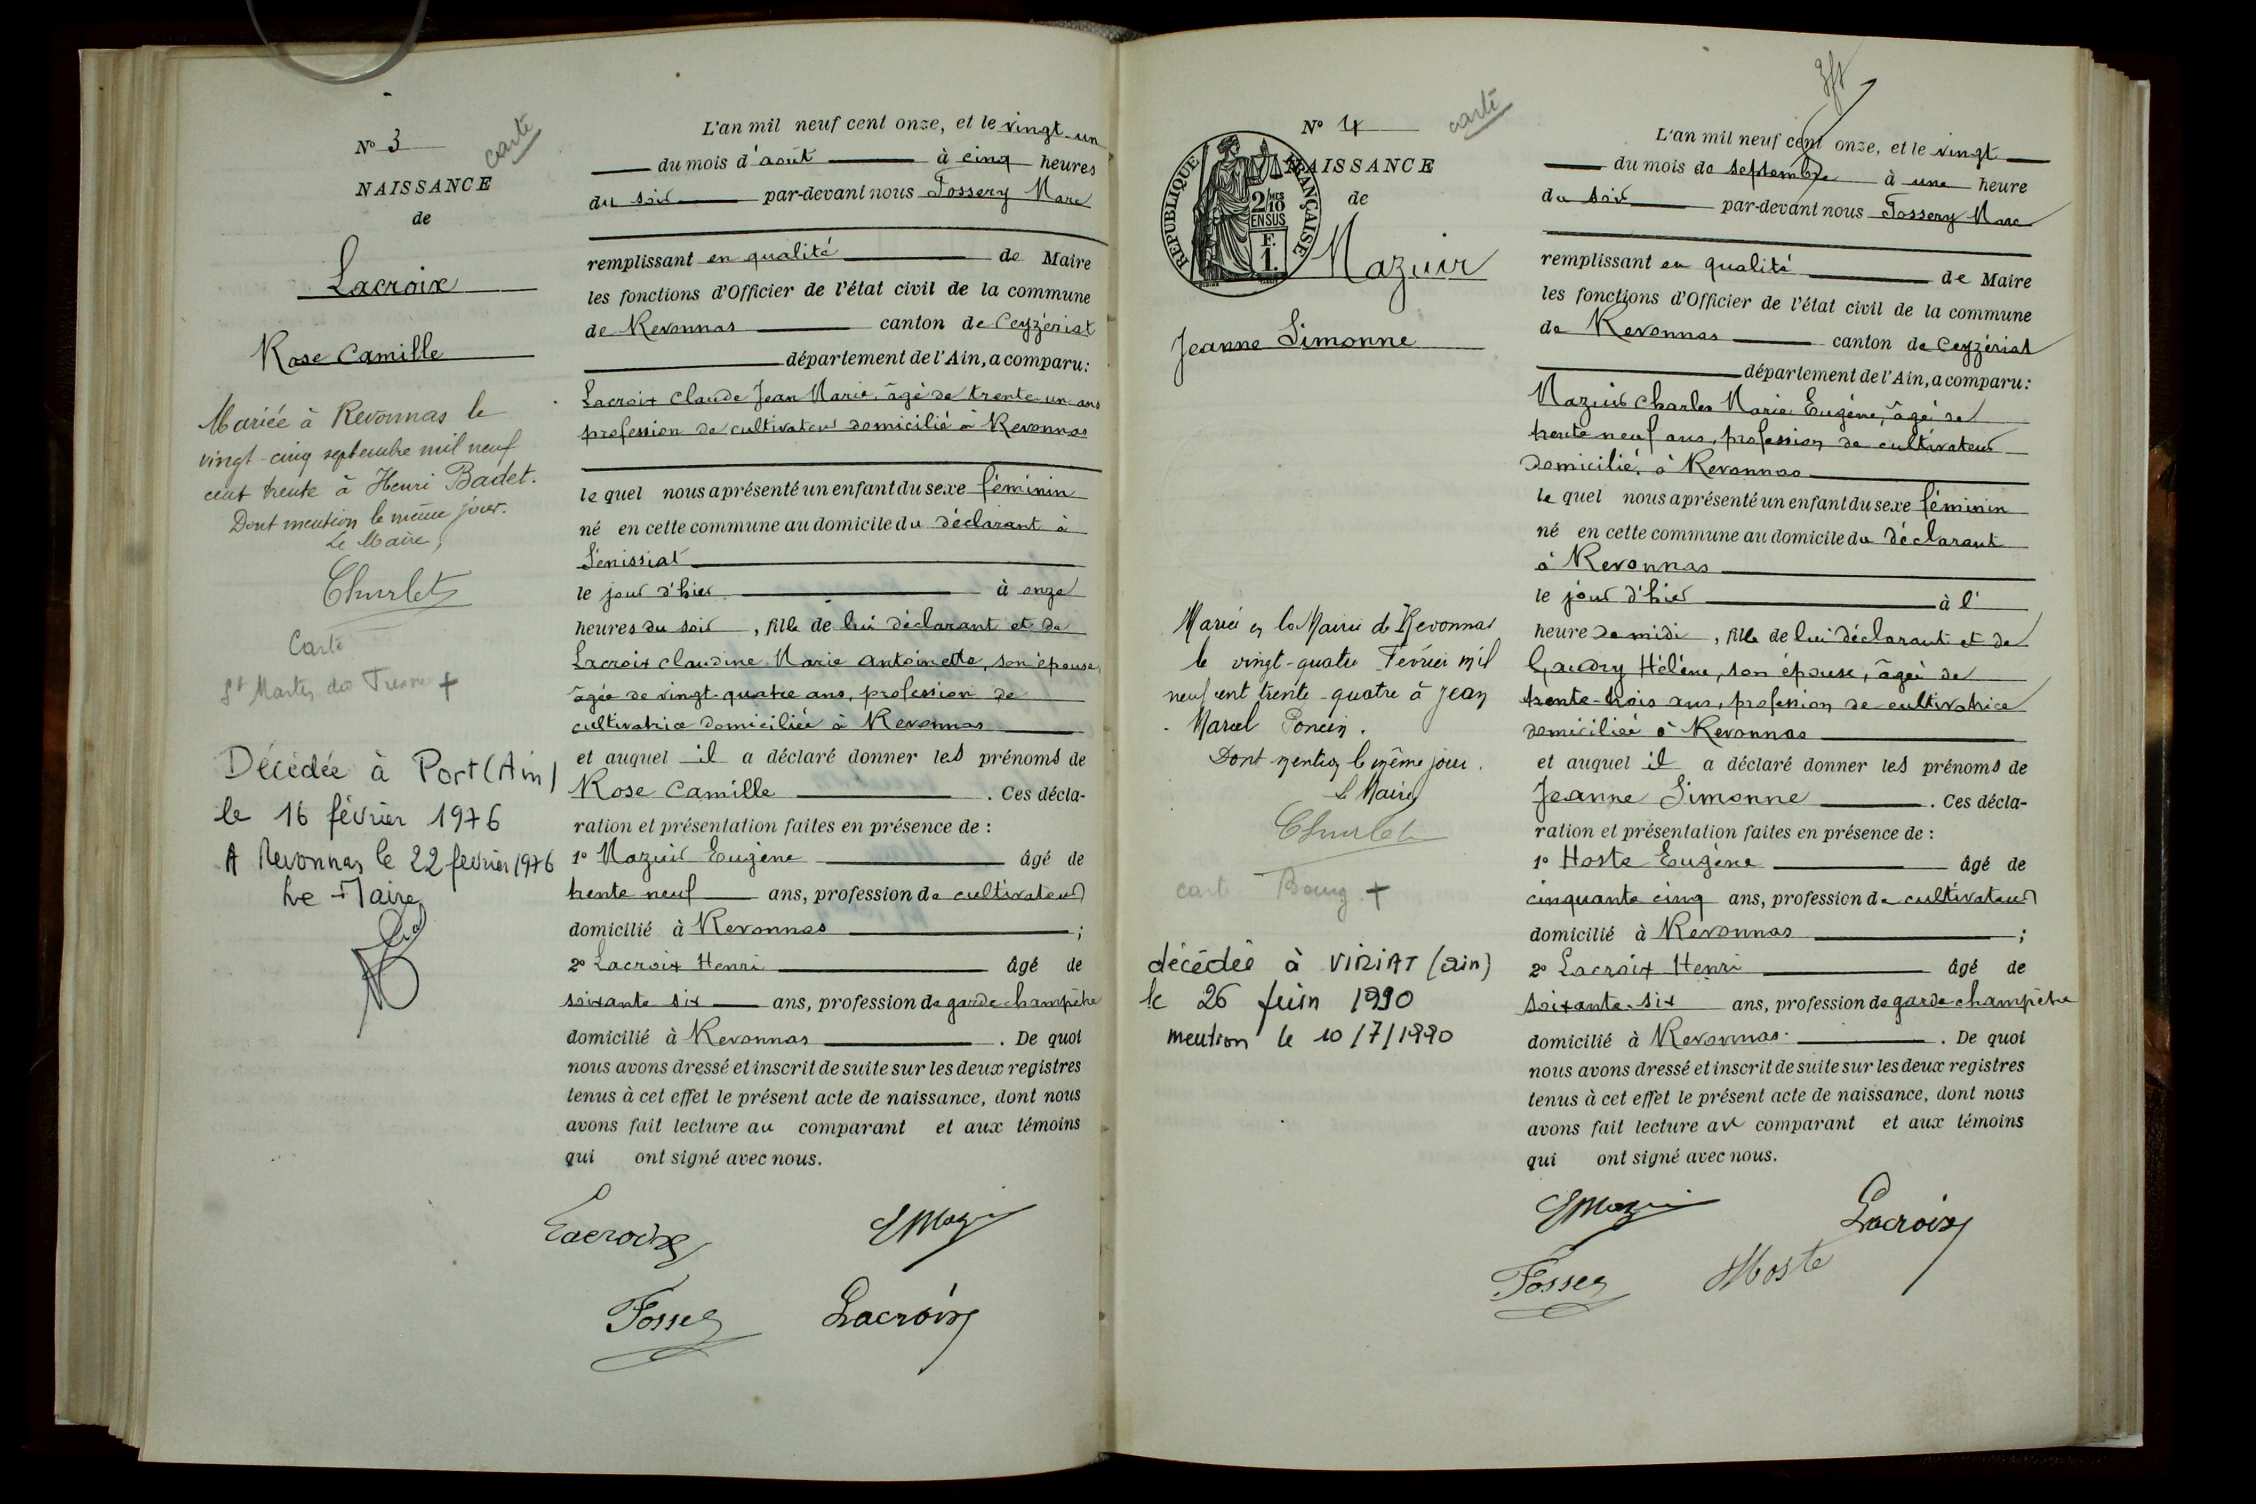 carte
N° 3
NAISSANCE
de
Lacroix
Rose Camille
Mariée à Revonnas le
vingt-cinq septembre mil neuf
cent trente à Henri Badet.
Dont mention le même jour.
Le Maire,
Churlet
Carte
St Martin du
Décédée à Port (Ain)
le 16 février 1976
A Revonnas le 22 février 1976
Le Maire
L'an mil neuf cent onze, et le vingt-un
du mois d'août à cinq heures
du soir par-devant nous Fossery Marc
remplissant en qualité de Maire
les fonctions d'Officier de l'état civil de la commune
de Revonnas canton de Ceyzériat
département de l'Ain, a comparu:
Lacroix Claude Jean Marie, âgé de trente un ans
profession de cultivateur domicilié à Revonnas
le quel nous a présenté un enfant du sexe féminin
né en cette commune au domicile du déclarant à
Sénissiat
le jour d'hier à onze
heures du soir, fille de lui déclarant et de
Lacroix Claudine Marie Antoinette, son épouse,
âgée de vingt-quatre ans, profession de
cultivatrice domiciliée à Revonnas
et auquel il a déclaré donner les prénoms de
Rose Camille. Ces décla-
ration et présentation faites en présence de :
1° Mazuir Eugène âgé de
trente neuf ans, profession de cultivateur
domicilié à Revonnas ;
2° Lacroix Henri âgé de
soixante six ans, profession de garde champêtre
domicilié à Revonnas. De quoi
nous avons dressé et inscrit de suite sur les deux registres
tenus à cet effet le présent acte de naissance, dont nous
avons fait lecture au comparant et aux témoins
qui ont signé avec nous.
Lacroix
E Mazuir
Fossery
Lacroix
carte
N° 4
NAISSANCE
de
REPUBLIQUE FRANÇAISE
2/10MES
EN SUS
F.
1.
Mazuir
Jeanne Simonne
Mariée en la Mairie de Revonnas
le vingt-quatre Février mil
neuf cent trente-quatre à Jean
Marcel Poncin.
Dont mention le même jour.
Le Maire
Churlet
carte Bourg +
décédée à VIRIAT (Ain)
le 26 juin 1990
mention le 10/7/1990
L'an mil neuf cent onze, et le vingt
du mois de septembre à une heure
du soir par-devant nous Fossery Marc
remplissant en qualité de Maire
les fonctions d'Officier de l'état civil de la commune
de Revonnas canton de Ceyzériat
département de l'Ain, a comparu:
Mazuir Charles Marie Eugène, âgé de
trente neuf ans, profession de cultivateur
domicilié à Revonnas
le quel nous a présenté un enfant du sexe féminin
né en cette commune au domicile du déclarant
à Revonnas
le jour d'hier à l'
heure de midi, fille de lui déclarant et de
Gaudry Hélène, son épouse, âgée de
trente-trois ans, profession de cultivatrice
domiciliée à Revonnas
et auquel il a déclaré donner les prénoms de
Jeanne Simonne. Ces décla-
ration et présentation faites en présence de :
1° Hoste Eugène âgé de
cinquante cinq ans, profession de cultivateur
domicilié à Revonnas ;
2° Lacroix Henri âgé de
soixante-six ans, profession de garde champêtre
domicilié à Revonnas. De quoi
nous avons dressé et inscrit de suite sur les deux registres
tenus à cet effet le présent acte de naissance, dont nous
avons fait lecture au comparant et aux témoins
qui ont signé avec nous.
E Mazuir
Lacroix
Fossery
Hoste